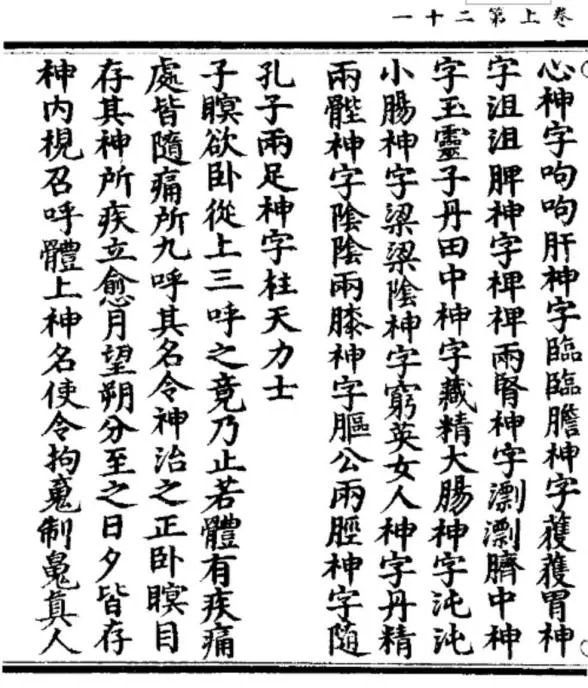 卷上第二十一
心神字呴呴肝神字臨臨膽神字蒦蒦胃神
字沮沮脾神字裨裨兩腎神字漂漂臍中神
字玉靈子丹田中神字藏精大腸神字沌沌
小腸神字梁梁陰神字窮英女人神字丹精
兩髀神字陰陰兩膝神字樞公兩脛神字隨
孔子兩足神字柱天力士
子瞑欲卧從上三呼之竟乃止若體有疾痛
處皆隨痛所九呼其名令神治之正卧瞑目
存其神所疾立愈月望朔分至之日夕皆存
神内視召呼體上神名使令拘䰟制鬼真人